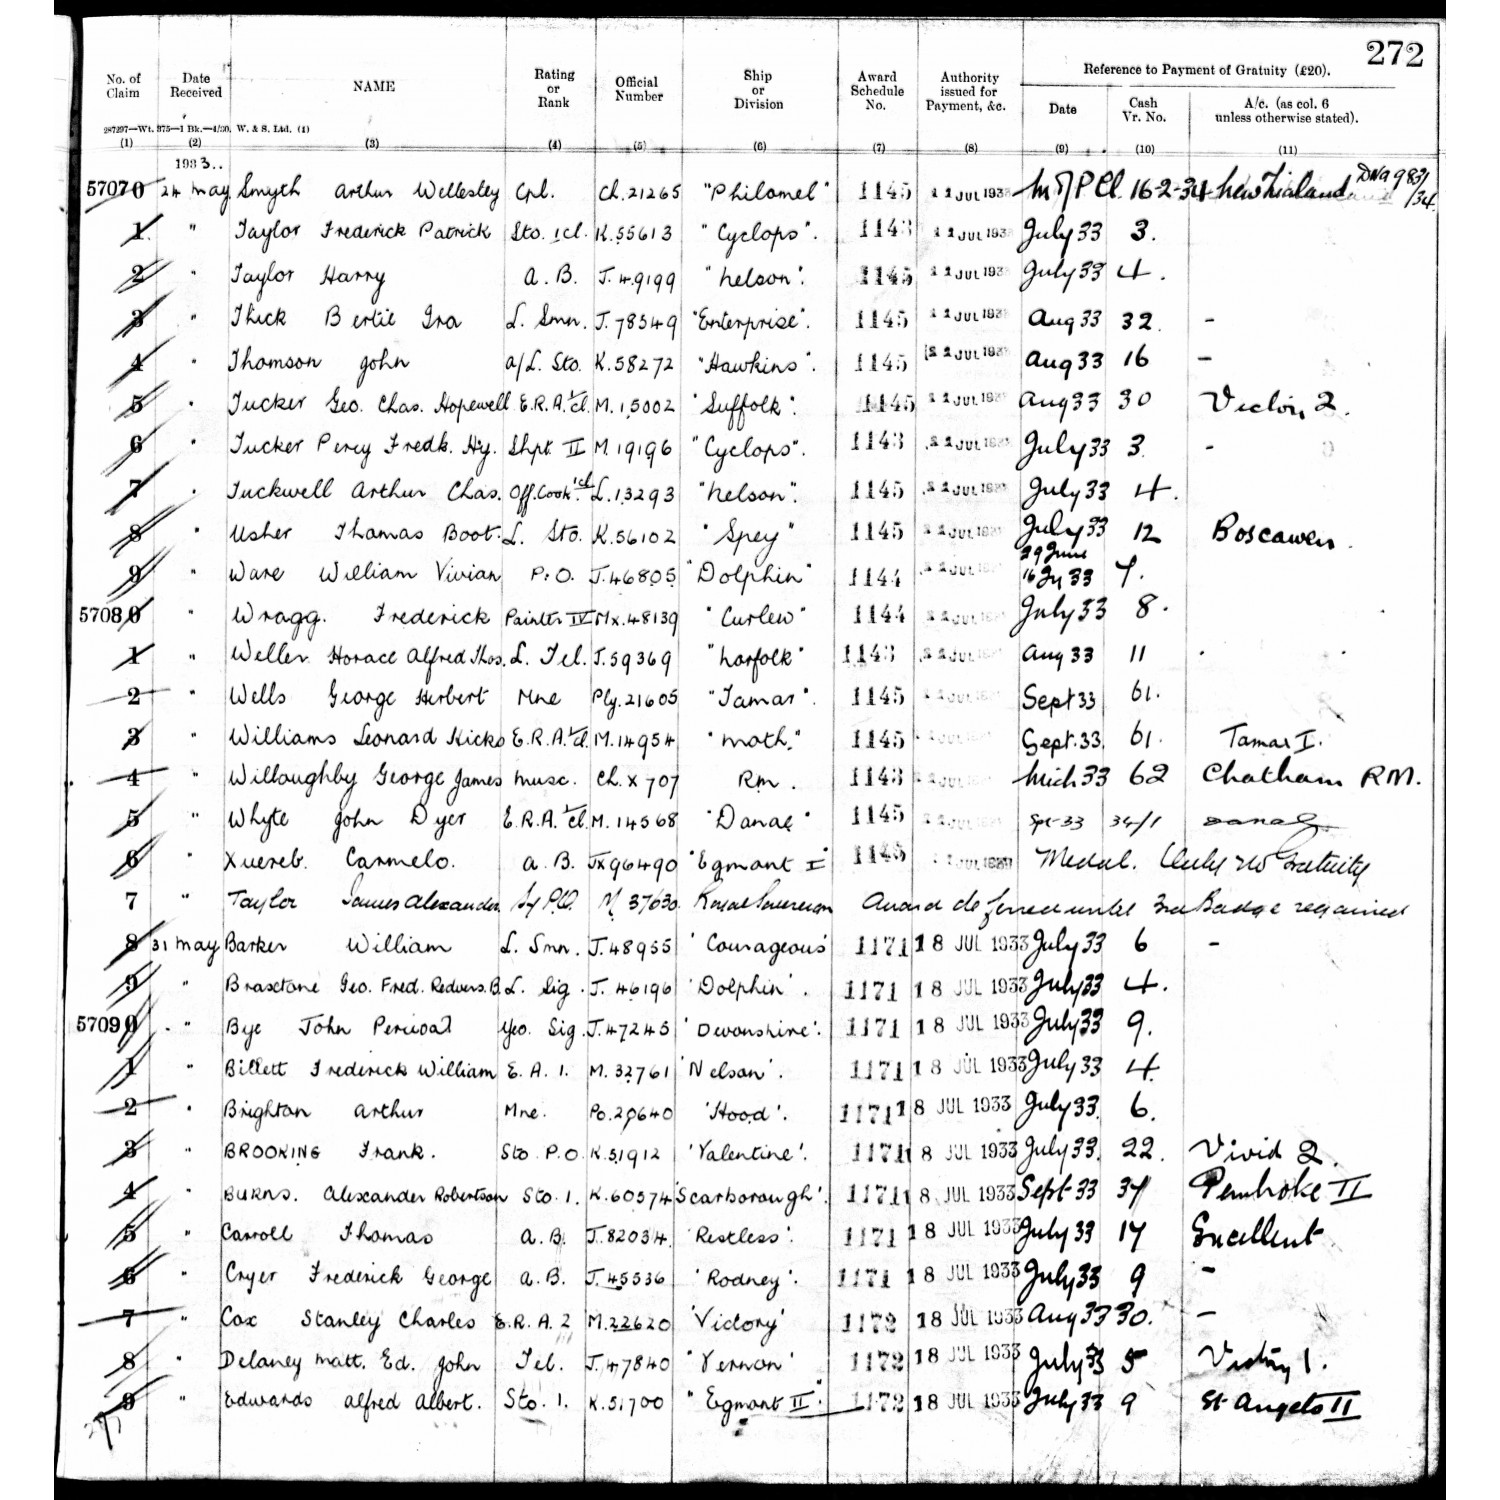 272
No. of Claim Date Received NAME Rating or Rank Official Number Ship or Division Award Schedule No. Authority issued for Payment, &c. Reference to Payment of Gratuity (£20).
Date Cash Vr. No. A/c. (as col. 6 unless otherwise stated).
287297—Wt. 375—1 Bk.—4/30. W. & S. Ltd. (1)
(1) (2) (3) (4) (5) (6) (7) (8) (9) (10) (11)
1933..
57070 24 May Smyth Arthur Wellesley Cpl. Ch.21265 "Philomel" 1145 JUL 16-2-34 New Zealand DNA 983/34
1 " Taylor Frederick Patrick Sto. 1cl. K.55613 "Cyclops". 1143 JUL July 33 3.
2 " Taylor Harry A. B. J.49199 "Nelson". 1145 JUL July 33 4.
3 " Thick Bertie Ira L. Smn. J.78549 "Enterprise". 1145 JUL Aug 33 32. -
4 " Thomson John A/L. Sto. K.58272 "Hawkins". 1145 JUL Aug 33 16 -
5 " Tucker Geo. Chas. Hopewell E.R.A. 1/cl. M.15002 "Suffolk". 1145 JUL Aug 33 30 Victory 2.
6 " Tucker Percy Fredk. Hy. Shpt. II M.19196 "Cyclops". 1143 JUL July 33 3 -
7 " Tuckwell Arthur Chas. Off. Cook. 1cl. L.13293 "Nelson". 1145 JUL July 33 4.
8 " Usher Thomas Boot. L. Sto. K.56102 "Spey" 1145 JUL July 33 12 Boscawen.
9 " Ware William Vivian P.O. J.46805 "Dolphin" 1144 JUL 29 June 16 Jy 33 7.
57080 " Wragg. Frederick Painter IV Mx.48139 "Curlew" 1144 JUL July 33 8.
1 " Weller Horace Alfred Thos. L. Tel. J.59369 "Norfolk" 1143 JUL Aug 33 11
2 " Wells George Herbert Mne Ply.21605 "Tamar". 1145 JUL Sept 33 61.
3 " Williams Leonard Hicks E.R.A. 1/cl. M.14954 "Moth." 1145 Sept. 33. 61. Tamar I.
4 " Willoughby George James Musc. Ch.X 707 RM. 1143 JUL Mich 33 62 Chatham RM.
5 " Whyte John Dyer E.R.A. 1/cl. M.14568 "Danae" 1145 Spt-33 34/1 Danae
6 " Xuereb. Carmelo. A. B. JX96490 "Egmont I" 1145 JUL Medal. Only no Gratuity
7 " Taylor James Alexander Sy P.O. M 37630 Royal Sovereign Award deferred until 3rd Badge regained
8 31 May Barker William L. Smn. J.48955 'Courageous' 1171 18 JUL 1933 July 33 6 -
9 " Braxtone Geo. Fred. Redvers. B. L. Sig. J.46196 'Dolphin'. 1171 18 JUL 1933 July 33 4.
57090 " Bye John Percival Yeo. Sig. J.47245 'Devonshire'. 1171 18 JUL 1933 July 33 9.
1 " Billett Frederick William E. A. 1. M.32761 'Nelson'. 1171 18 JUL 1933 July 33 4.
2 " Brighton Arthur Mne. Po.20640 'Hood'. 1171 18 JUL 1933 July 33. 6.
3 " BROOKING Frank. Sto P.O. K.51912 'Valentine'. 1171 18 JUL 1933 July 33. 22. Vivid 2.
4 " BURNS. Alexander Robertson Sto. 1. K.60574 'Scarborough'. 1171 18 JUL 1933 Sept 33 37 Pembroke II
5 " Carroll Thomas A. B. J.82034. 'Restless'. 1171 18 JUL 1933 July 33 17 Excellent
6 " Cryer Frederick George A. B. J.45536 'Rodney'. 1171 18 JUL 1933 July 33 9 -
7 " Cox Stanley Charles E.R.A. 2 M.22620 'Victory' 1172 18 JUL 1933 Aug 33 30. -
8 " Delaney Matt. Ed. John Tel. J.47840 'Vernon' 1172 18 JUL 1933 July 33 5 Victory 1.
9 " Edwards Alfred Albert. Sto. 1. K.51700 "Egmont II". 1172 18 JUL 1933 July 33 9 St Angelo II